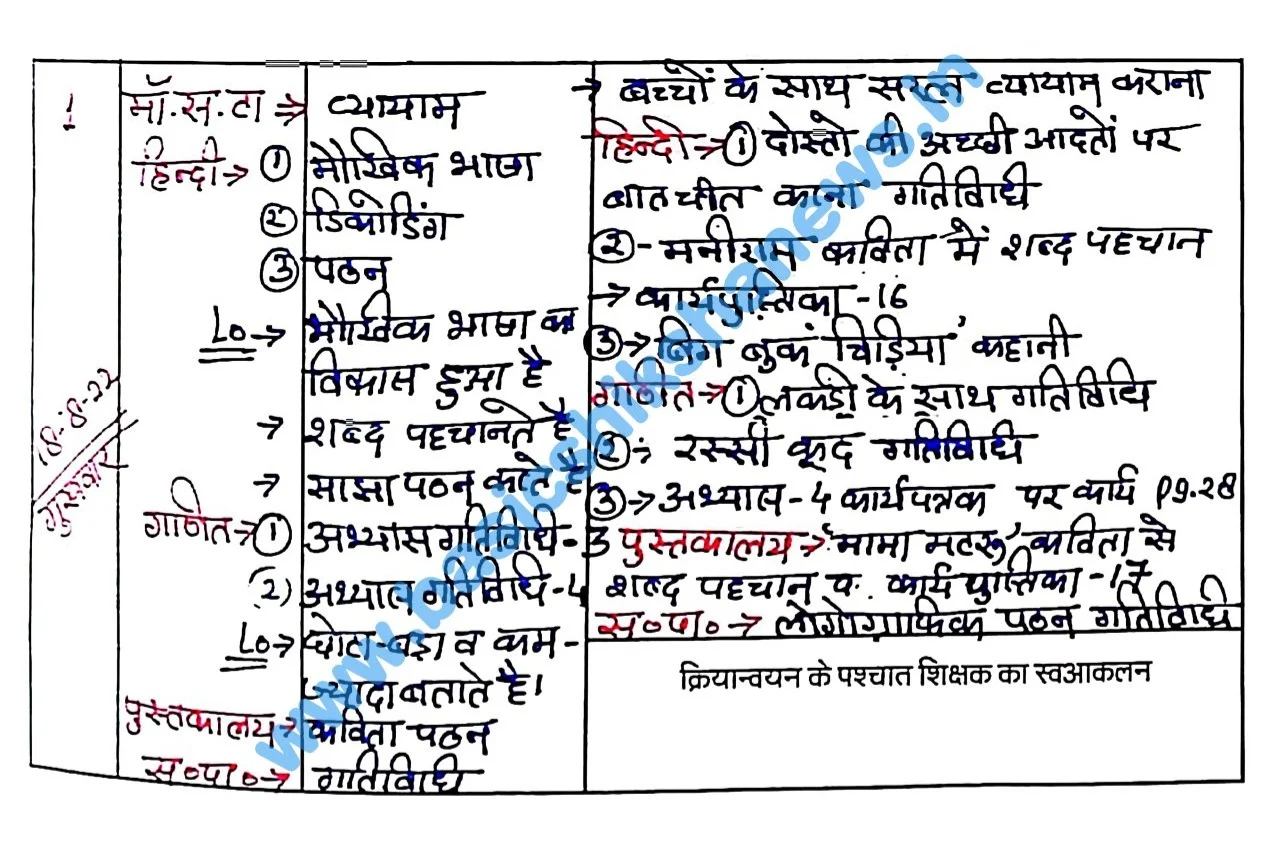 1
18-8-22
गुरुवार
मॉ.स.टा → व्यायाम
हिन्दी → ① मौखिक भाषा
② डिकोडिंग
③ पठन
Lo → मौखिक भाषा का
विकास हुआ है
→ शब्द पहचानते है
→ साझा पठन करते है
गणित → ① अभ्यास गतिविधि-3
(2) अभ्यास गतिविधि-4
Lo → छोटा-बड़ा व कम-
ज्यादा बताते है।
पुस्तकालय → कविता पठन
स०पा० → गतिविधि
→ बच्चों के साथ सरल व्यायाम कराना
हिन्दी → ① दोस्तो की अच्छी आदतों पर
बातचीत करना गतिविधि
② - मनीराम कविता में शब्द पहचान
→ कार्यपुस्तिका -16
③ → बिग बुक 'चिड़िया' कहानी
गणित → ① लकडी के साथ गतिविधि
② ÷ रस्सी कूद गतिविधि
③ → अभ्यास-4 कार्यपत्रक पर कार्य pg.28
पुस्तकालय → 'मामा मटरू' कविता से
शब्द पहचान व. कार्यपुस्तिका -17
स०पा० → लोगोग्राफिक पठन गतिविधि
क्रियान्वयन के पश्चात शिक्षक का स्वआकलन
www.basicshikshanews.in